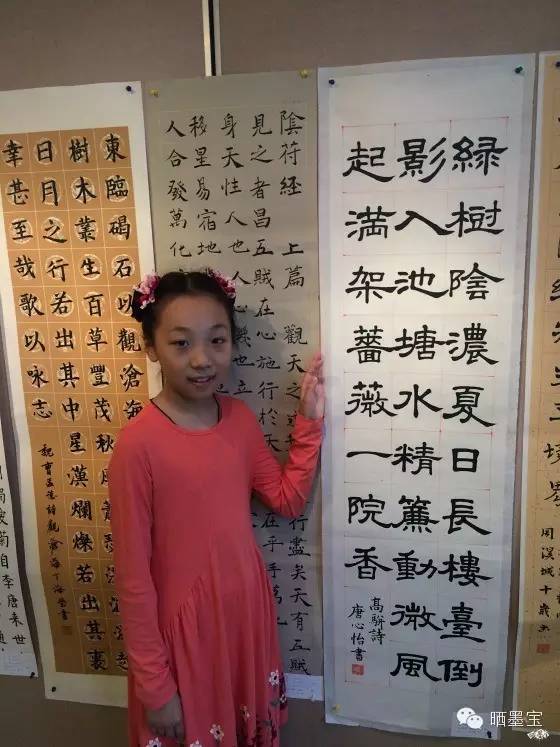 緑樹陰濃夏日長樓臺倒
影入池塘水精簾動微風
起滿架薔薇一院香
高駢詩
唐心怡書
陰符經 上篇 觀天之
行盡矣天有五賊
見之者昌五賊在心施行於天
在乎手萬
身天性人也人
也立
移星易宿地
人合發萬化
東臨碣石以觀滄海
樹木叢生百草豐茂秋
日月之行若出其中星漢爛燦若出其裏
幸甚至哉歌以詠志
魏曹孟德詩觀滄海
自李唐来世
晒墨宝